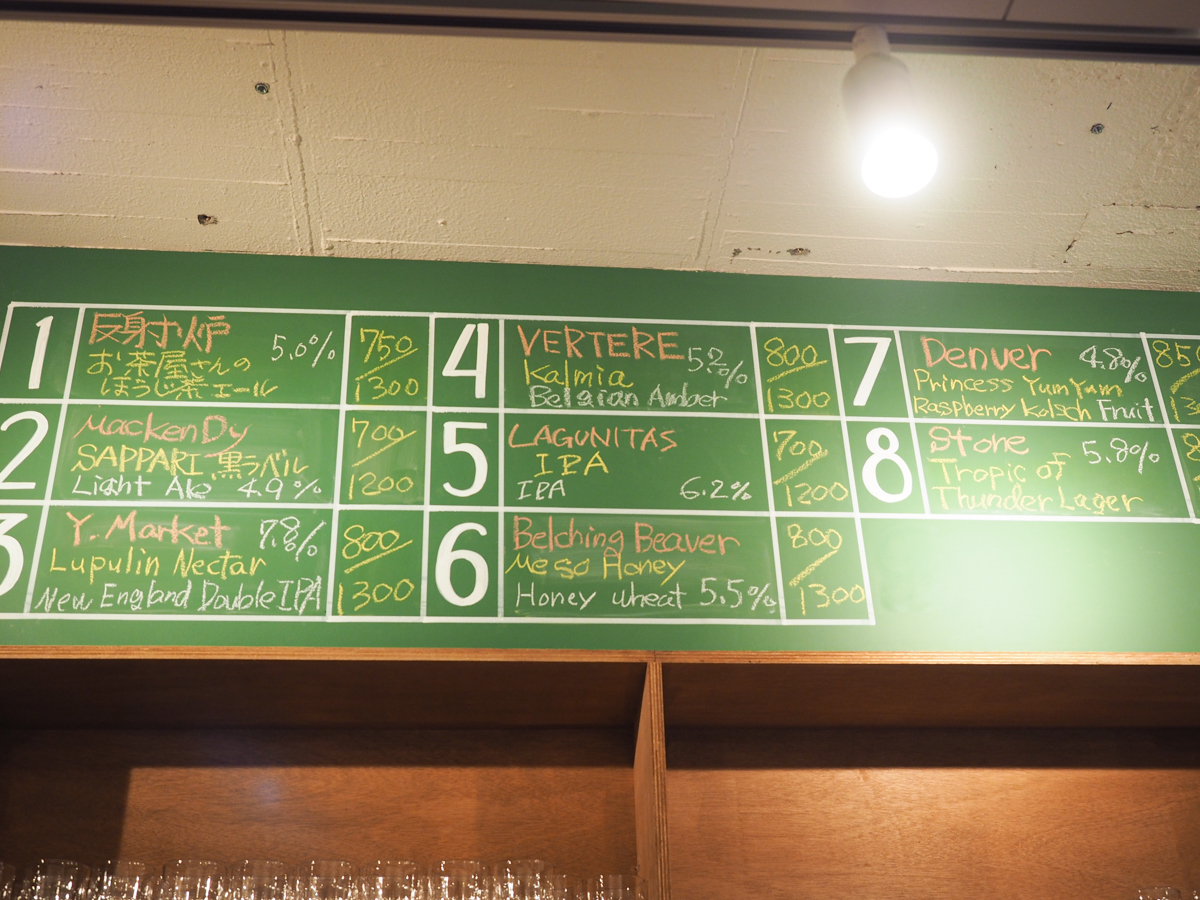 1
反射炉 5.0%
お茶屋さんの
ほうじ茶エール
750
1300
2
MackenDy
SAPPARI 黒ラベル
Light Ale 4.9%
700
1200
3
Y. Market 7.8%
Lupulin Nectar
New England Double IPA
800
1300
4
VERTERE 5.2%
Kalmia
Belgian Amber
800
1300
5
LAGUNITAS
IPA
IPA 6.2%
700
1200
6
Belching Beaver
Me so Honey
Honey wheat 5.5%
800
1300
7
Denver 4.8%
Princess Yum Yum
Raspberry Kolsch Fruit
850
8
Stone 5.8%
Tropic of
Thunder Lager